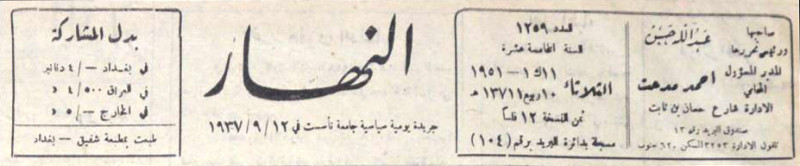 صاحبها
ورئيس تحريرها
عبدالله حسين
المدير المسؤول
المحامي
احمد مدحت
الادارة شارع حسان بن ثابت
صندوق البريد رقم ١٣
تلفون الادارة ٣٢٥٣ السكن ٦٢٠ جنوب
العدد ١٢٥٩
السنة الخامسة عشرة
الثلاثاء
١١ك١ — ١٩٥١
١٠ربيع١١ ١٣٧١ هـ
ثمن النسخة ١٢ فلساً
مسجلة بدائرة البريد برقم (١٠٤)
النهار
جريدة يومية سياسية جامعة تأسست في ١٢/٩/١٩٣٧
بدل المشاركة
في بغداد —/٤ دنانير
في العراق ٤/٥٠٠ د
في الخارج —/٥ د
طبعت بمطبعة شفيق — بغداد